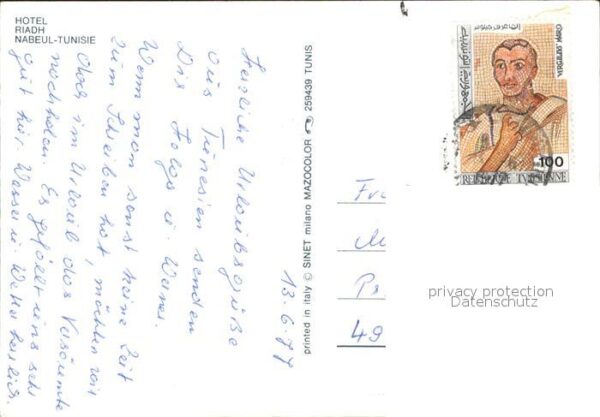 HOTEL
RIADH
NABEUL-TUNISIE
13.6.77
Herzliche Urlaubsgrüße
aus Tunesien senden
Dir Holga u. Werner.
Wenn man sonst keine Zeit
zum Schreiben hat, möchten wir
doch im Urlaub das Versäumte
nachholen. Es gefällt uns sehr
gut hier. Wasser u. Wetter herrlich.
printed in italy © SINET milano MAZOCOLOR 259439 TUNIS
VERGILIUS MARO
100
REPUBLIQUE TUNISIENNE
Fr
M
Ps
49
privacy protection
Datenschutz